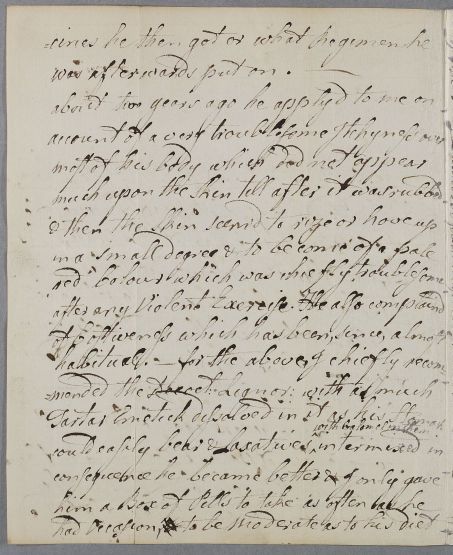 -cines he then got or what Regimen he
was afterwards put on. —
about two years ago he apply'd to me on
account of a very troublesome Itchyness over
most of his body which did not appear
much upon the skin till after it was rubbed
& then the skin seem'd to rise or hove up
in a small degree & to become of a pale
red Colour which was chiefly troublesome
after any Violent Exercise. He also complained
of Costiveness which has been, since, almost
habitual. — for the above, I chiefly recom
=mended the Liquor: with as much
Tartar Emetick dissolved in it as his Stomach
with Calomel
could easily bear & Laxatives, intermixed in
consequence he became better & I only gave
him a Box of Pills to take as often as he
had occasion, & to be moderate as to his diet